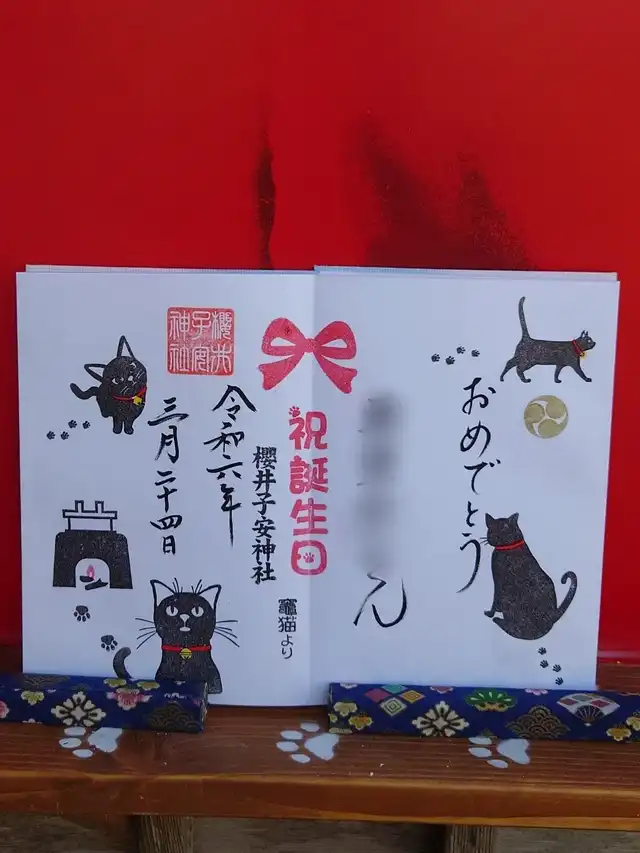 おめでとう
ん
祝誕生日
櫻井子安神社
竈猫より
令和六年
三月二十四日
櫻井
子安
神社